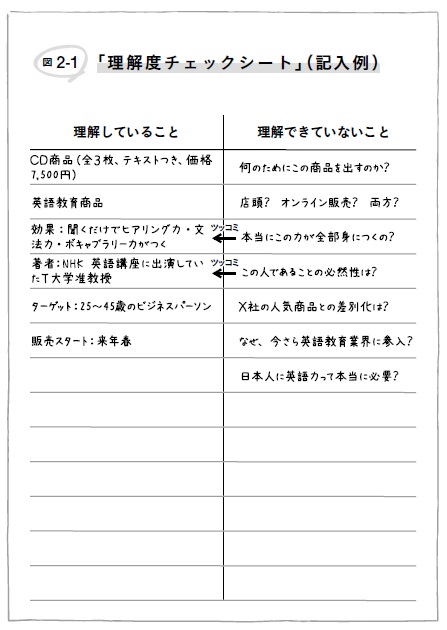 図 2-1 「理解度チェックシート」（記入例）
理解していること
理解できていないこと
CD商品（全3枚、テキストつき、価格
7,500円）
何のためにこの商品を出すのか？
英語教育商品
店頭？　オンライン販売？　両方？
効果：聞くだけでヒアリング力・文
法力・ボキャブラリー力がつく
ツッコミ
本当にこの力が全部身につくの？
著者：NHK 英語講座に出演してい
たT大学准教授
ツッコミ
この人であることの必然性は？
ターゲット：25〜45歳のビジネスパーソン
X社の人気商品との差別化は？
販売スタート：来年春
なぜ、今さら英語教育業界に参入？
日本人に英語力って本当に必要？